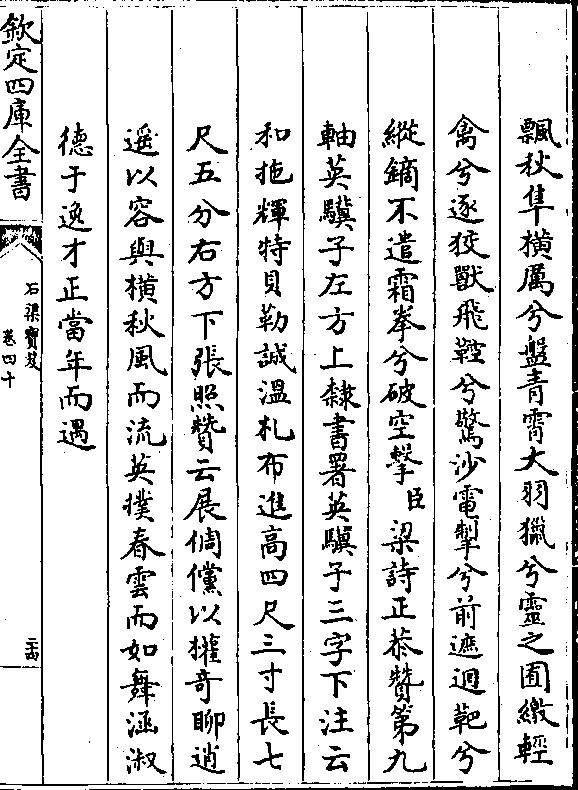 飄秋隼橫厲兮盤青霄大羽獵兮靈之囿繳輕
禽兮逐狡獸飛鞚兮驚沙電掣兮前遮迴靶兮
縱鏑不遣霜拳兮破空擊臣梁詩正恭贊第九
軸英驥子左方上隸書署英驥子三字下注云
和拖輝特貝勒誠溫札布進高四尺三寸長七
尺五分右方下張照贊云展倜儻以權奇聊逍
遥以容與橫秋風而流英撲春雲而如舞涵淑
德于逸才正當年而遇
欽定四庫全書
石渠寶笈
卷四十
二十四